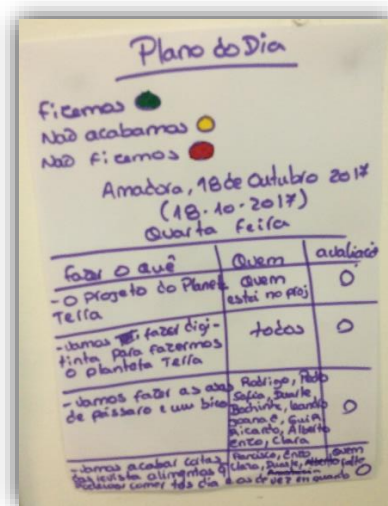 Plano do Dia
Ficemos
Não acabamos
Não Ficemos
Amadora, 18 de Outubro 2017
(18.10.2017)
Quarta Feira
fazer o quê Quem avaliação
- O Projeto do Planeta Terra Quem está no proj
- Vamos fazer digi-
tinta para fazermos
o planeta Terra
todos
- Vamos fazer as asas
de pássaro e um bico
Rodrigo, Pedro
Sofia, Duarte
Leandro
Joana e, Guia
Ricardo, Alberto
Enzo, Clara
- Vamos acabar
Francisco, Enzo
Clara, Duarte, Alberto
revista alimentos q
Podemos comer tds dia e os de vez em quando
Quem
falta